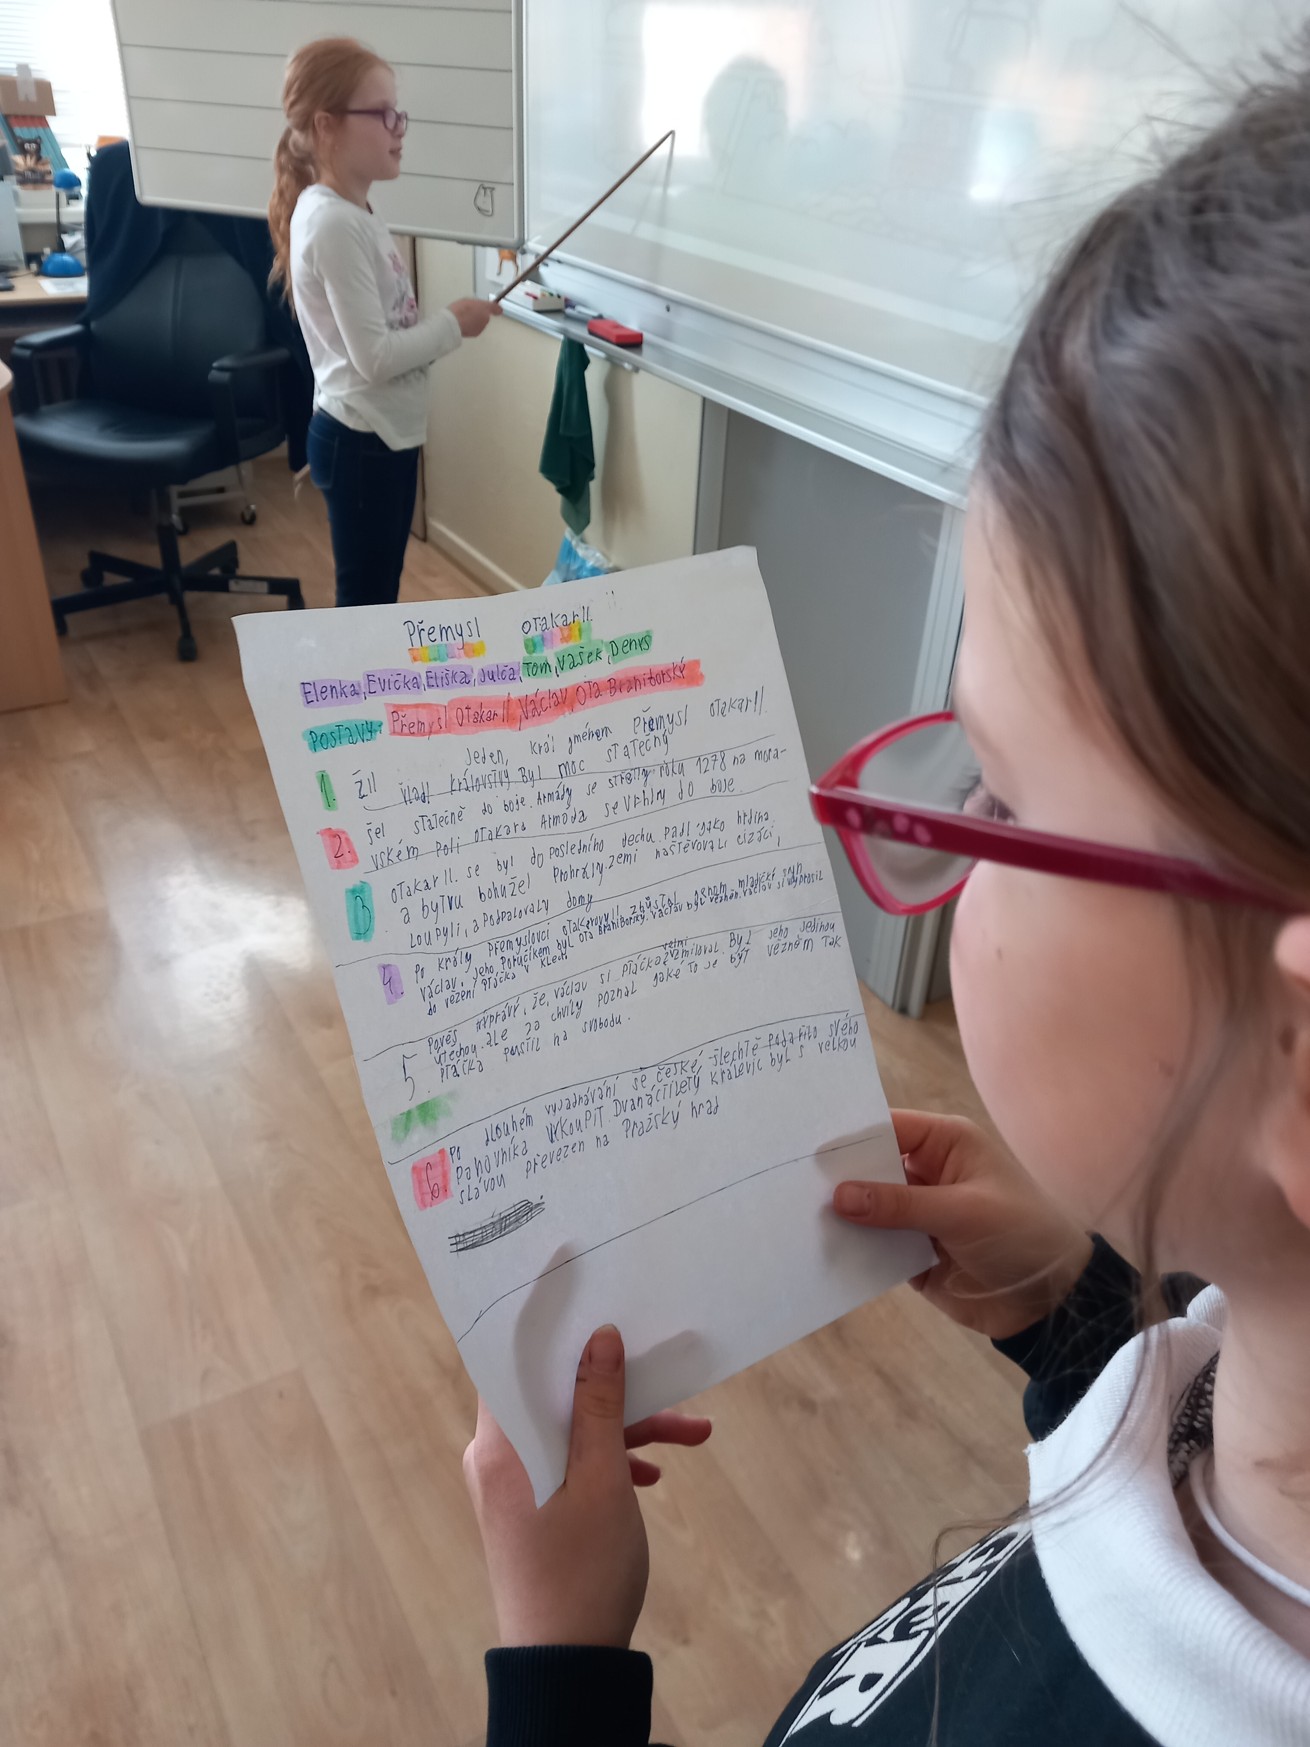 Přemysl otakar II.
Elenka, Evička, Eliška, Julča, Tom, Vašek, Denys
Postavy: Přemysl Otakar II, Václav, Ota Braniborský
1. Žil Jeden, král jménem Přemysl otakar II.
vladl království Byl moc statečný
2. šel statečně do boje. Armády se střetly roku 1278 na mora-
vském poli otakara Armáda se vrhly do boje.
3 otakar II. se byl do posledního dechu padl jako hrdina.
a bytvu bohužel Prohrály. zemi naštěvovali cizáci,
Loupyli, a Podpalovaly domy
4. Po krály Přemyslovci otakarovy II zbűstal jenom mladičký syn
Václav, jeho Poručíkem byl ota Braniborský. Václav byl vězněn. Václav si vyprosil
do vězení ptáčka v kleci
5. Pověs vypráví, že, václav si ptáčka velmi zamiloval. Byl jeho jedinou
útěchou. ale za chvíly poznal jaké to je být vězněm tak
Ptáčka Pustil na svobodu.
6. Po dlouhém vyjadnávání se české šlechtě Podařilo svého
Panovníka VYKouPiT. Dvanáctiletý kralevic byl s velkou
slávou Převezen na Pražský hrad